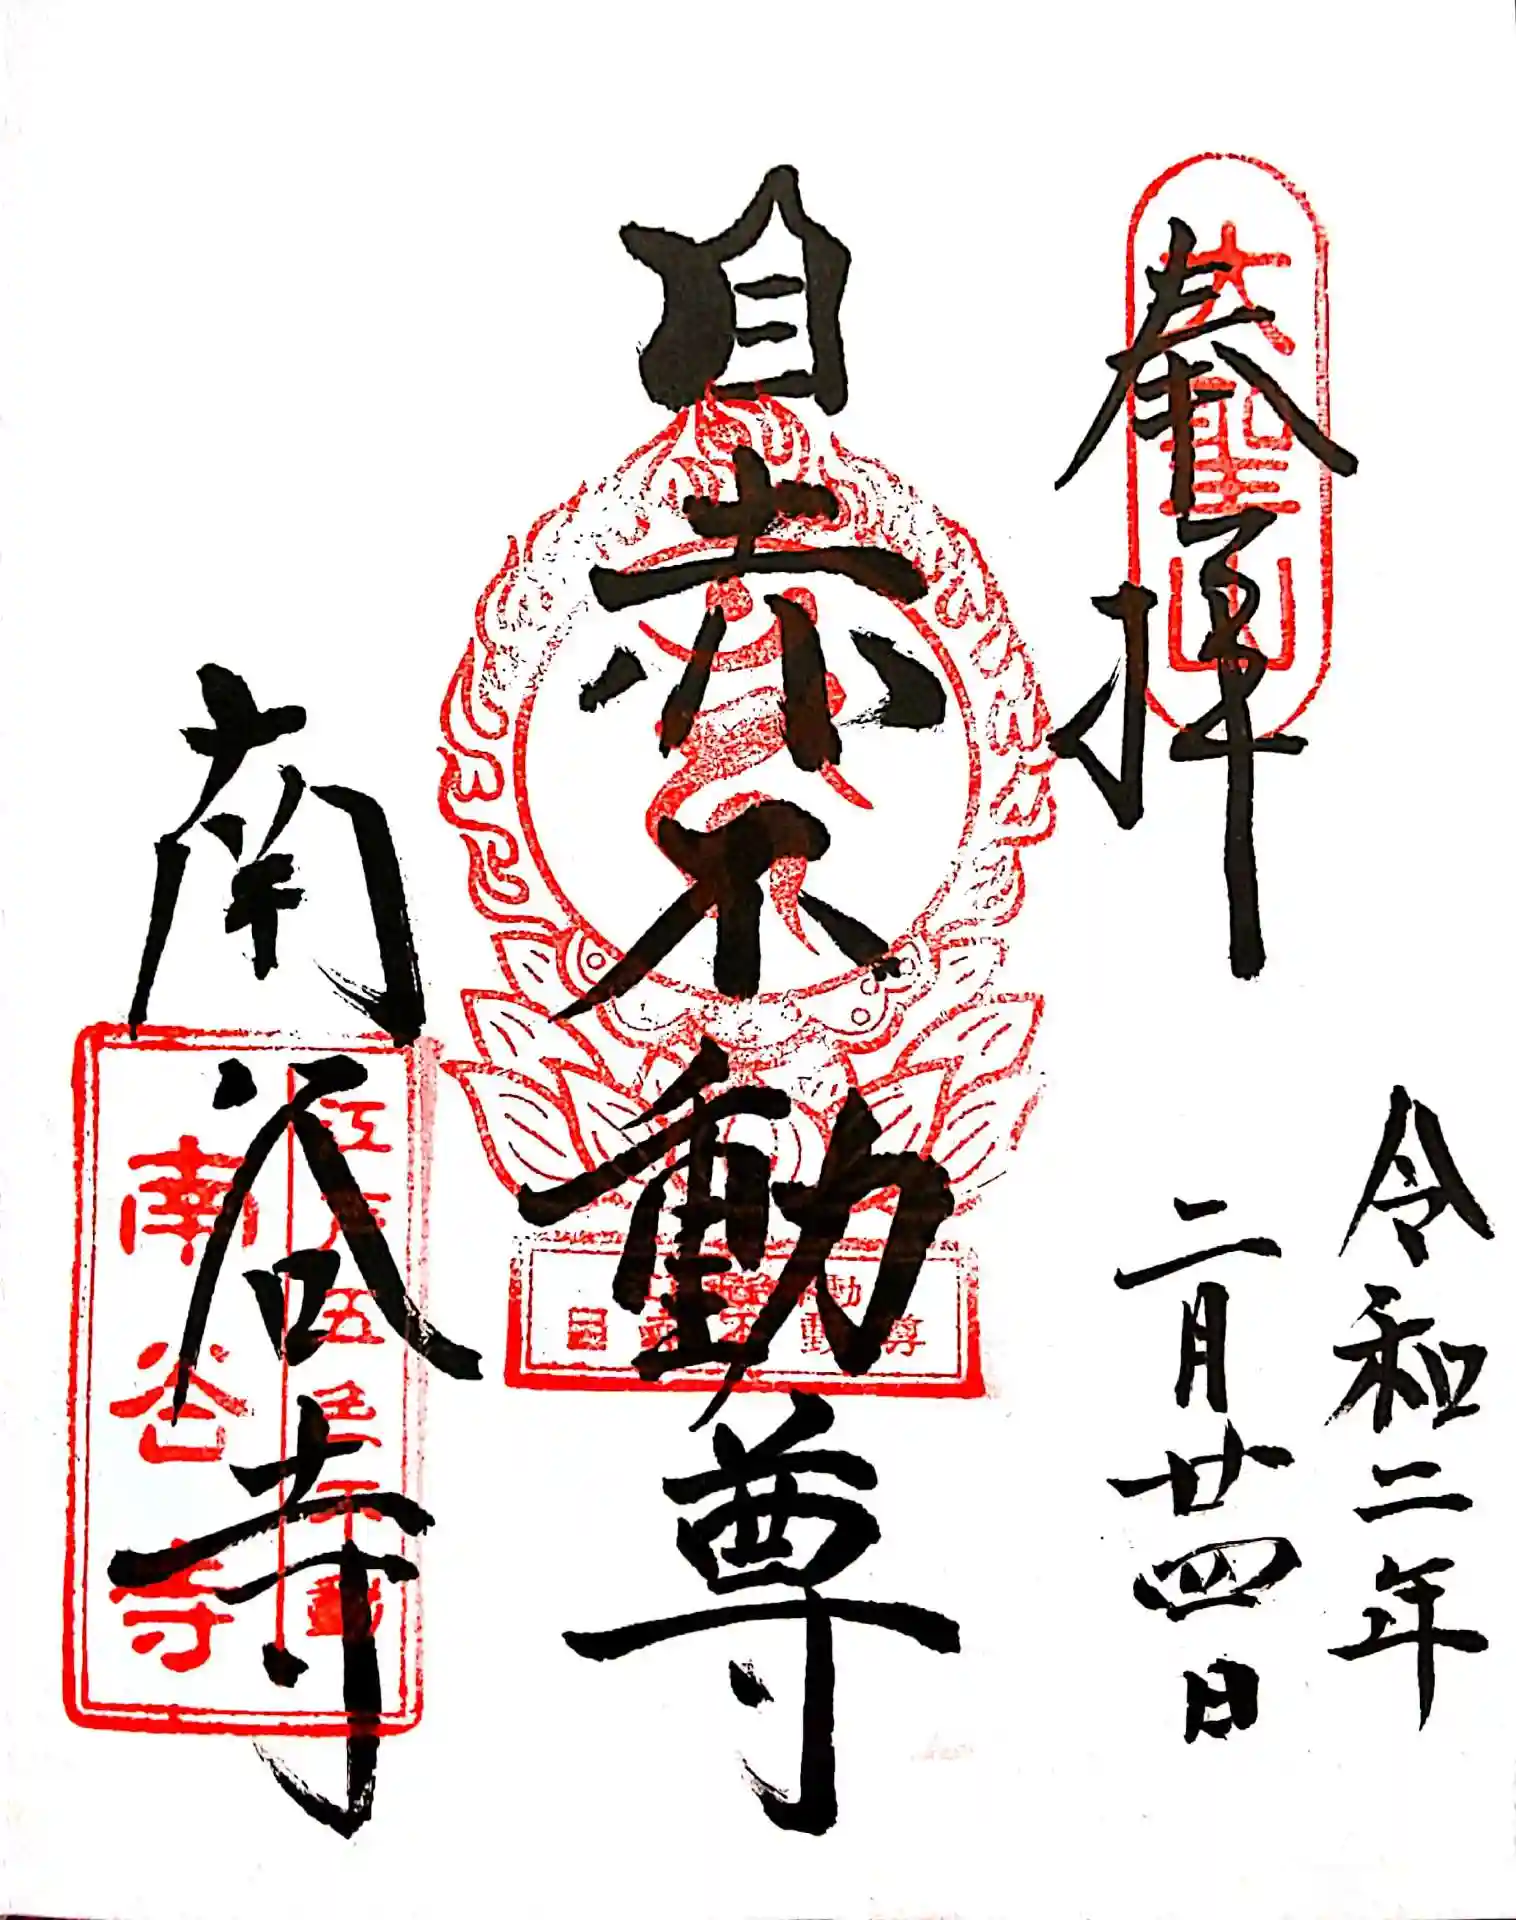 奉拝
大聖山
令和二年
二月廿四日
目赤不動尊
目赤不動尊
南谷寺
江戸五色不動
南谷寺